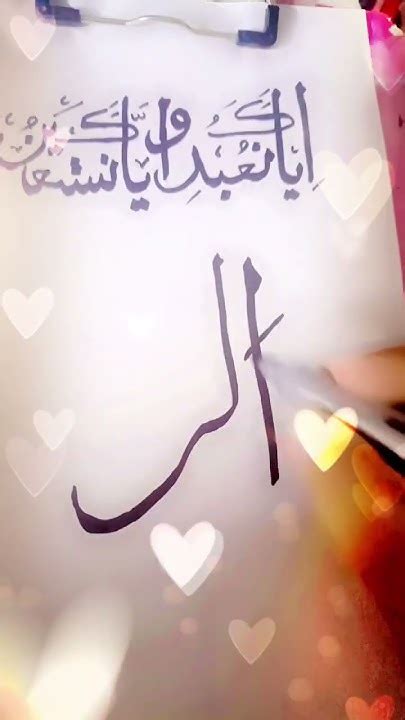 إِيَّاكَ نَعْبُدُ وَإِيَّاكَ نَسْتَعِينُ
الر